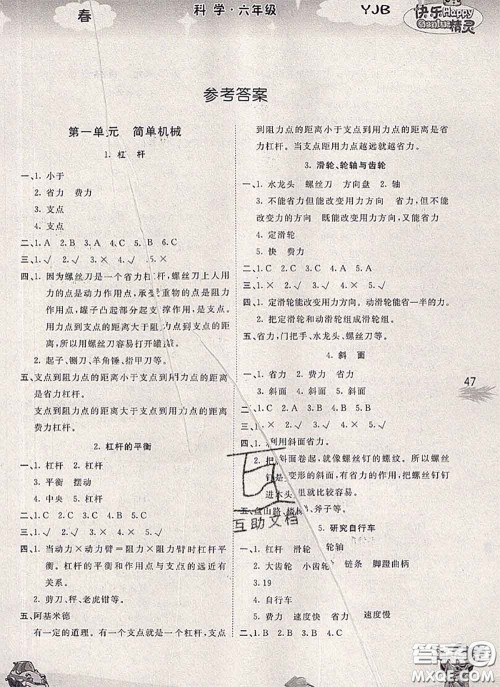 春
科学·六年级
YJB
快乐Happy
Genius精灵
参考答案
第一单元 简单机械
1. 杠 杆
一、1. 小于
2. 省力 费力
3. 支点
二、1. A 2. B 3. C 4. C 5. A
三、1. √ 2. × 3. √ 4. √
四、1. 因为螺丝刀是一个省力杠杆,螺丝刀上人用
力的点是动力作用点,承受重物的点是阻力
作用点,接触部位支撑作用,是支点。
力点的距离大于阻力点到支点的距
离,所以用螺丝刀容易打开罐
2. 起子、铡刀、羊角锤、指甲刀等。
五、支点到阻力点的距离小于支点到用力点的距离
是省力杠杆。
支点到阻力点的距离大于支点到用力点的距离
是费力杠杆。
2. 杠杆的平衡
一、1. 杠杆 2. 杠杆
3. 平衡 摆动
4. 中央 5. 杠杆
二、1. C 2. A 3. C 4. A
三、1. √ 2. √ 3. × 4. √
四、1. 当动力×动力臂=阻力×阻力臂时杠杆平
衡。杠杆的平衡与力的大小和距离支点的远近
有关系。
2. 剪刀、秤、老虎钳等。
五、阿基米德
有一定的道理。有的杠杆是省力杠杆,支点
到阻力点的距离小于支点到用力点的距离是省
力杠杆。支点到用力点越远就越省力。
3. 滑轮、轮轴与齿轮
一、1. 水龙头 螺丝刀 方向盘 2. 轴
3. 不能省力但能改变用力方向 省力但不能改
变用力的方向 既能改变用力方向又能省力
4. 定滑轮
5. 快 费力
二、1. C 2. B 3. B 4. C
三、1. × 2. × 3. √ 4. √ 5. √
四、1. 定滑轮能改变作用力方向,动滑轮能省一半的力。
2. 把定滑轮和动滑轮组成滑轮组。
五、省力,门把手、水龙头、螺丝刀等。
4. 斜 面
一、1. 省力 2. 费力 省力
3. 斜面 4. 斜面 5. 斜面
二、1. B 2. C 3. A 4. C 5. B
三、1. √ 2. × 3. √ 4. × 5. ×
四、1. 利用斜面省力。
2. 把斜面卷起,就像螺丝钉的螺纹。所以螺丝
钉是变形的斜面,有很大的作用,把螺丝钉钉
进木头里就比较容易。
五、盘山路、楼梯、斧子等。
5. 研究自行车
一、1. 杠杆 滑轮 轮轴
2. 大齿轮 小齿轮 链条 脚蹬曲柄
3. 19
4. 自行车
5. 费力 速度快 省力 速度慢
二、1. B 2. B 3. A 4. C
47
互助文档
答案圈
MXQE.COM